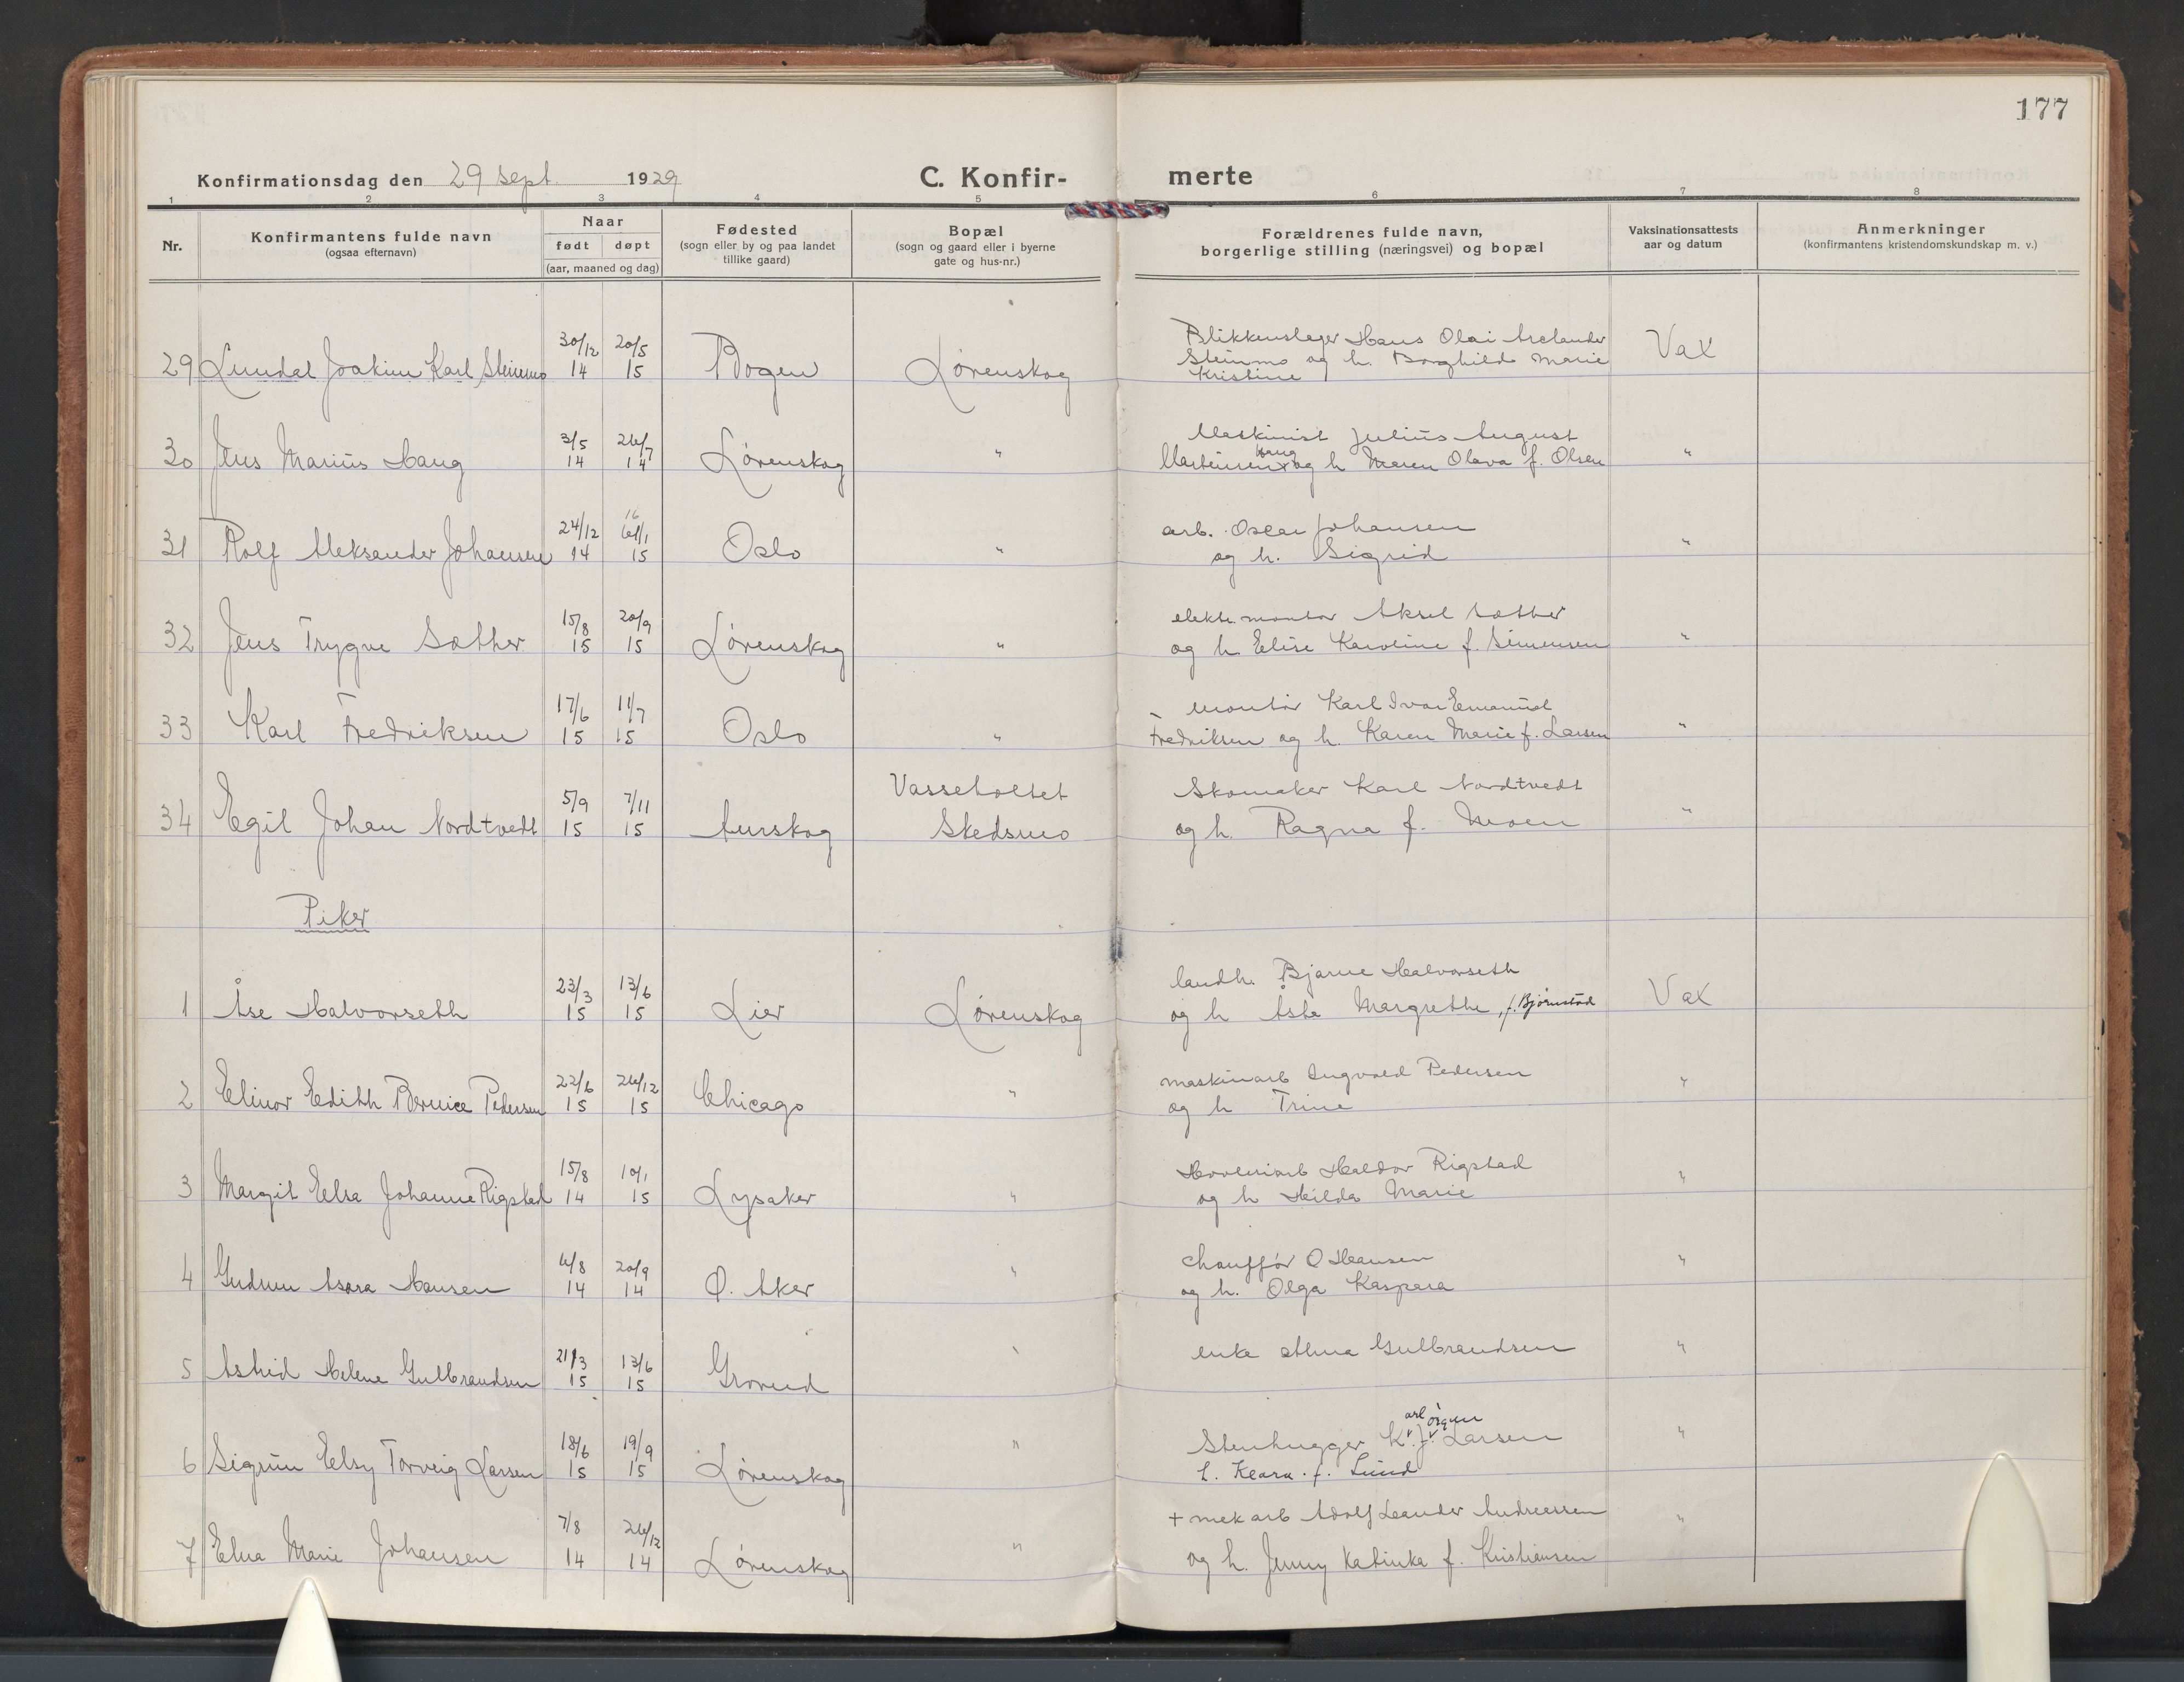 177
Konfirmationsdag den 29 sept. 1929 C. Konfir- merte
1 2 3 4 5 6 7 8
Nr. Konfirmantens fulde navn (ogsaa efternavn) Naar født døpt (aar, maaned og dag) Fødested (sogn eller by og paa landet tillike gaard) Bopæl (sogn og gaard eller i byerne gate og hus-nr.) Forældrenes fulde navn, borgerlige stilling (næringsvei) og bopæl Vaksinationsattests aar og datum Anmerkninger (konfirmantens kristendomskundskap m. v.)
30/12 20/5 Blikkenslager Hans Olai
29 Lundal Joakim Karl Steinmo 14 15 Bogen Lørenskog Steinmo og h. Borghild Marie Vax
Kristine
3/5 26/7 Maskinist Julius August
30 Jens Marius Haug 14 14 Lørenskog " Martinsen Haug og h Maren Olava f. Olsen "
24/12 16/1 arb. Oscar Johansen
31 Rolf Aleksander Johansen 14 15 Oslo " og h. Sigrid "
15/8 20/9 elektr. montør Aksel Sæther
32 Jens Trygve Sæther 15 15 Lørenskog " og h Elise Karoline f. Simensen "
17/6 11/7 montør Karl Ivar Emanuel
33 Karl Fredriksen 15 15 Oslo " Fredriksen og h. Karen Marie f. Larsen "
5/9 7/11 Vasseholtet Skomaker Karl Nordtvedt
34 Egil Johan Nordtvedt 15 15 Aurskog Skedsmo og h. Ragna f. Moen "
Piker
23/3 13/6 landh. Bjarne Halvorseth
1 Åse Halvorseth 15 15 Lier Lørenskog og h Åsta Margrethe, f. Bjørnstad Vax
22/6 26/12 maskinarb Ingvald Pedersen
2 Elinor Edith Bernice Pedersen 15 15 Chicago " og h Trine "
15/8 10/1 Haldor Rigstad
3 Margit Elsa Johanne Rigstad 14 15 Lysaker " og h Hilda Marie "
6/8 20/9 chauffør O Hansen
4 Gudrun Asora Hansen 14 14 Ø. Aker " og h. Olga Kaspara "
21/3 13/6 enke Gulbrandsen
5 Astrid Helene Gulbrandsen 15 15 Grorud " "
18/6 19/9 Stenhugger Karl Jørgen Larsen
6 Sigrun Elsy Torveig Larsen 15 15 Lørenskog " h. Klara f. Lund "
7/8 26/12 + mek arb Adolf Leander Andreassen
7 Elna Marie Johansen 14 14 Lørenskog " og h. Jenny Katinka f. Kristiansen "